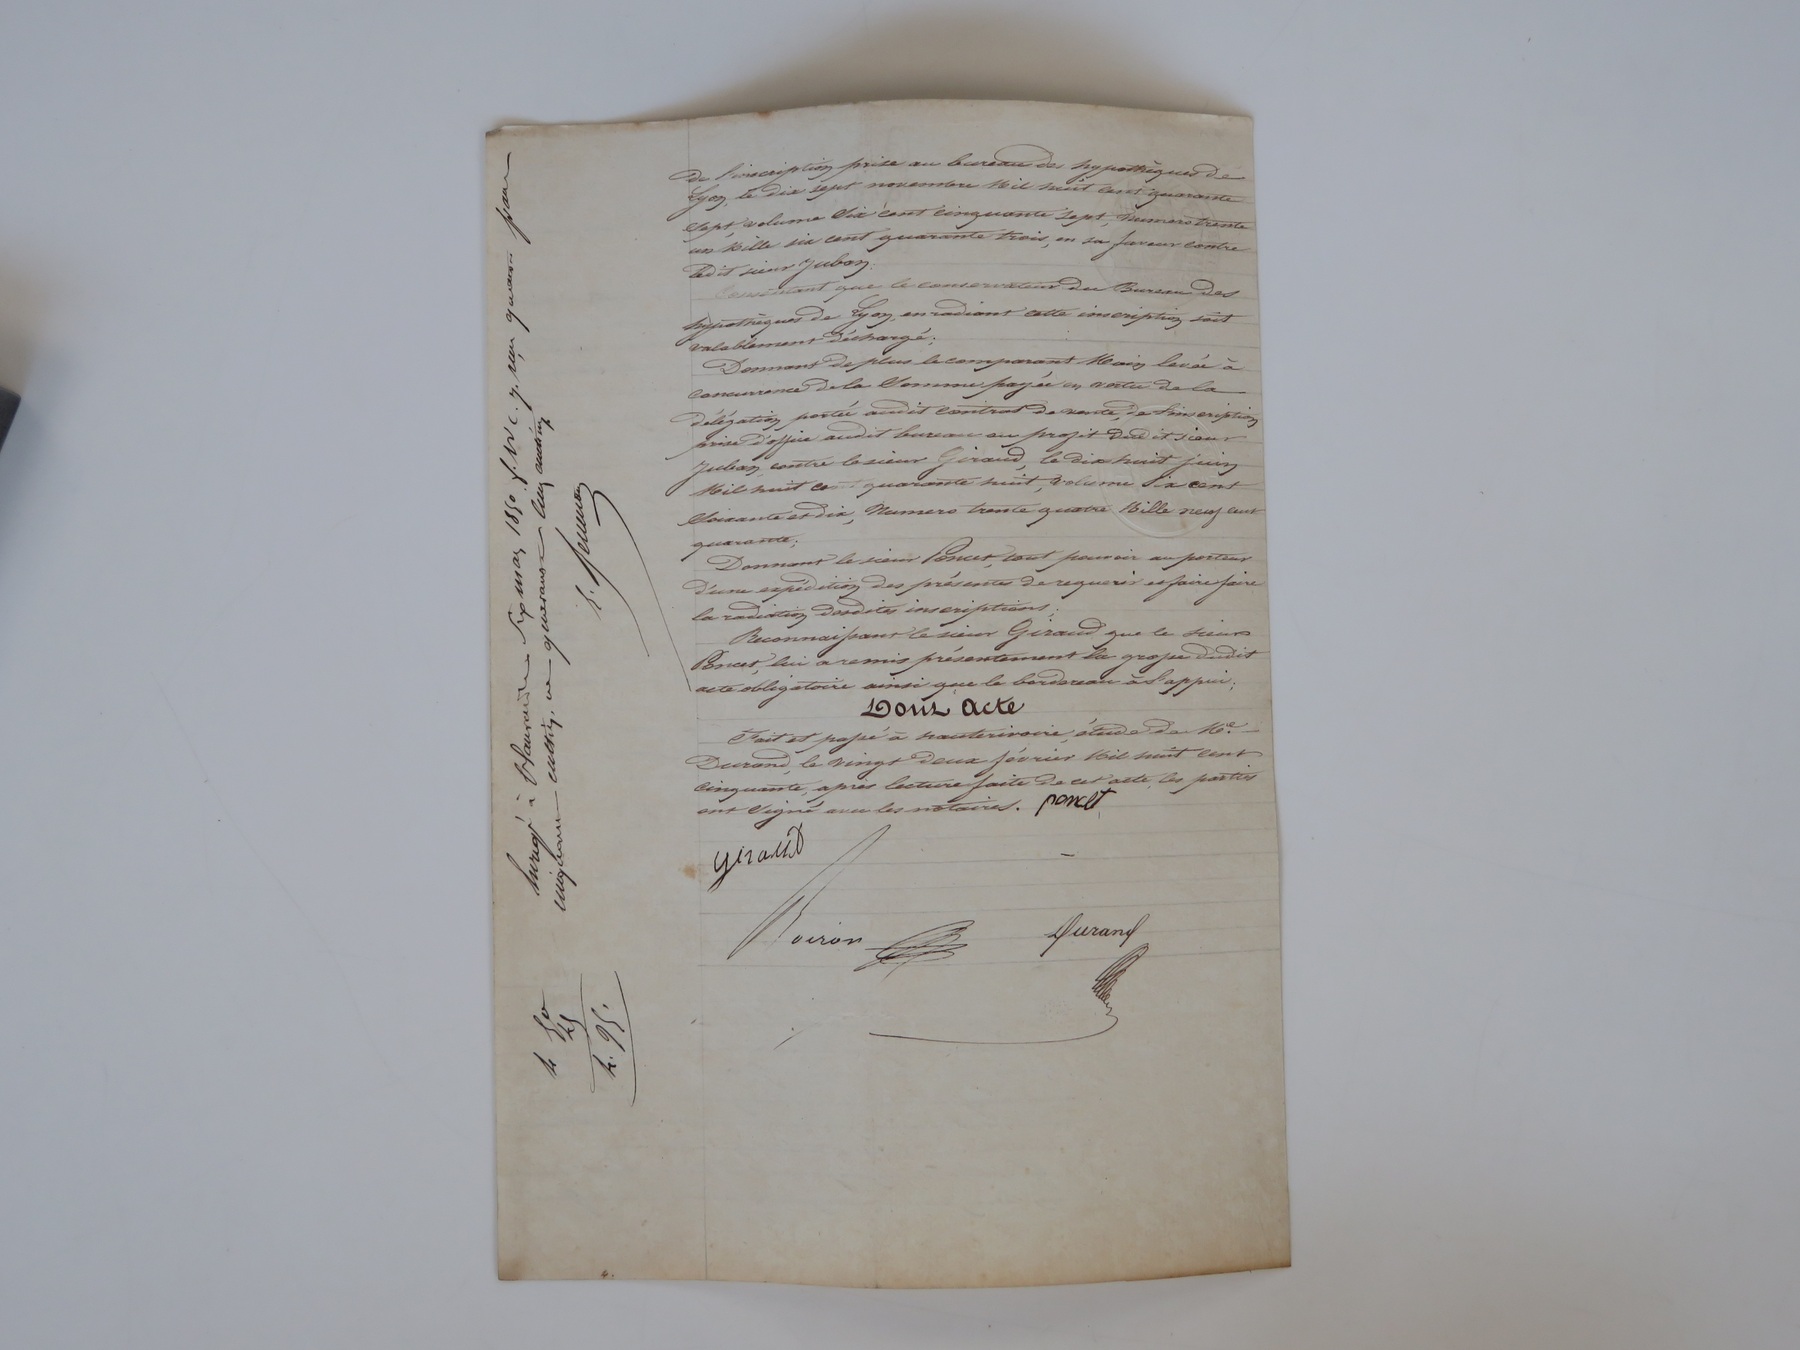 de l'inscription prise au bureau des hypothèques de
Lyon, le dix sept novembre Mil huit cent quarante
sept, volume Six cent cinquante sept, Numero trente
un Mille six cent quarante trois, en sa faveur contre
ledit sieur Juban.
Consentant que le conservateur du Bureau des
hypothèques de Lyon, en radiant cette inscription soit
valablement déchargé;
Donnant de plus le comparant, Main levée à
concurrence de la Somme payée en vertu de la
délégation portée audit contrat de vente, de l'inscription
prise d'office audit bureau au profit dudit sieur
Juban, contre le sieur Giraud, le dix huit juin
Mil huit cent quarante huit, volume Six cent
Soixante et dix, Numero trente quatre Mille neuf cent
quarante;
Donnant le sieur Poncet, tout pouvoir au porteur
d'une expédition des présentes de requerir et faire faire
la radiation desdites inscriptions;
Reconnaissant le sieur Giraud que le sieur
Poncet, lui a remis présentement la grosse dudit
acte obligatoire ainsi que le bordereau à l'appui;
Dont Acte
Fait et passé à hauterivoire, étude de Me.
Durand, le vingt deux février Mil huit cent
cinquante, après lecture faite de cet acte, les parties
ont Signé avec les notaires. poncet
giraud
Voiron
Durand
mars 1850. f.
4 50
45
4. 95.